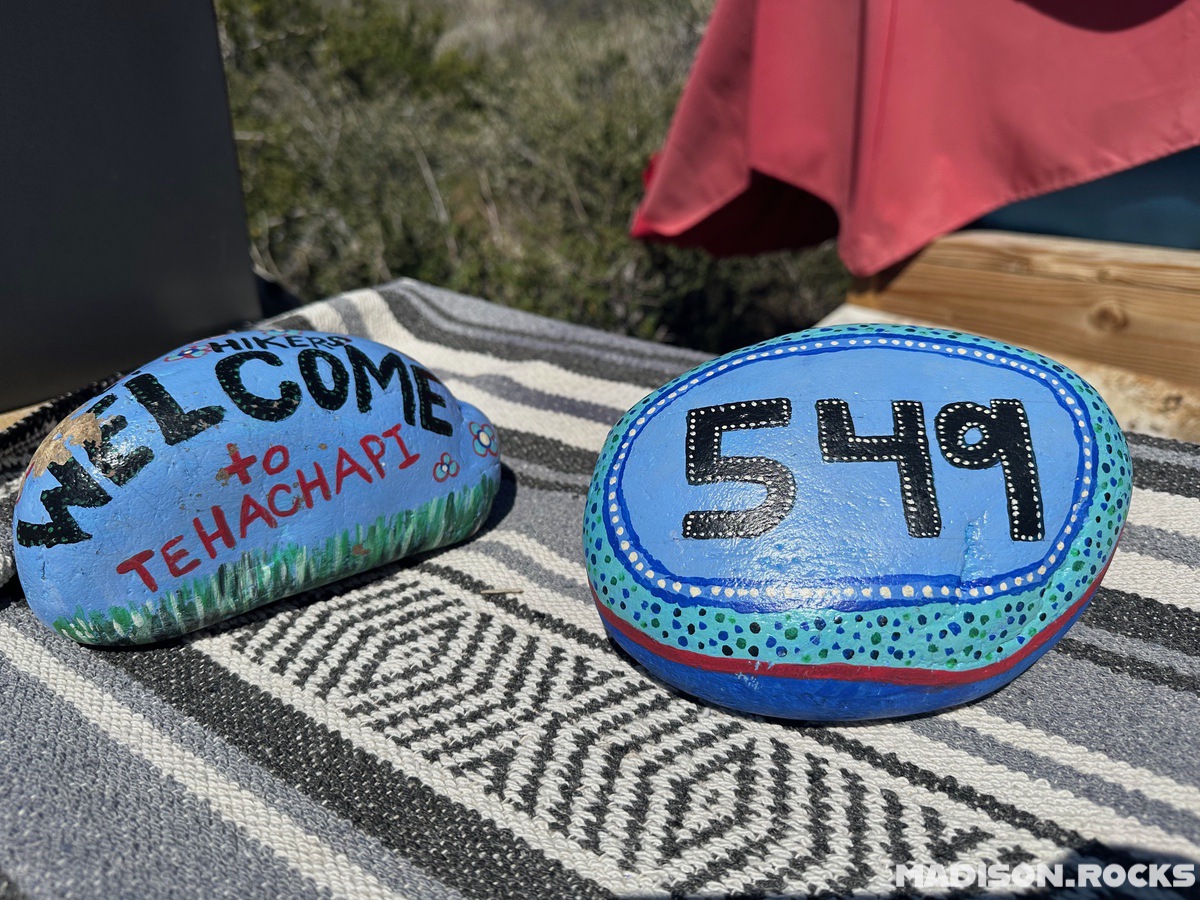 HIKERS
WELCOME
to
TEHACHAPI
549
MADISON.ROCKS